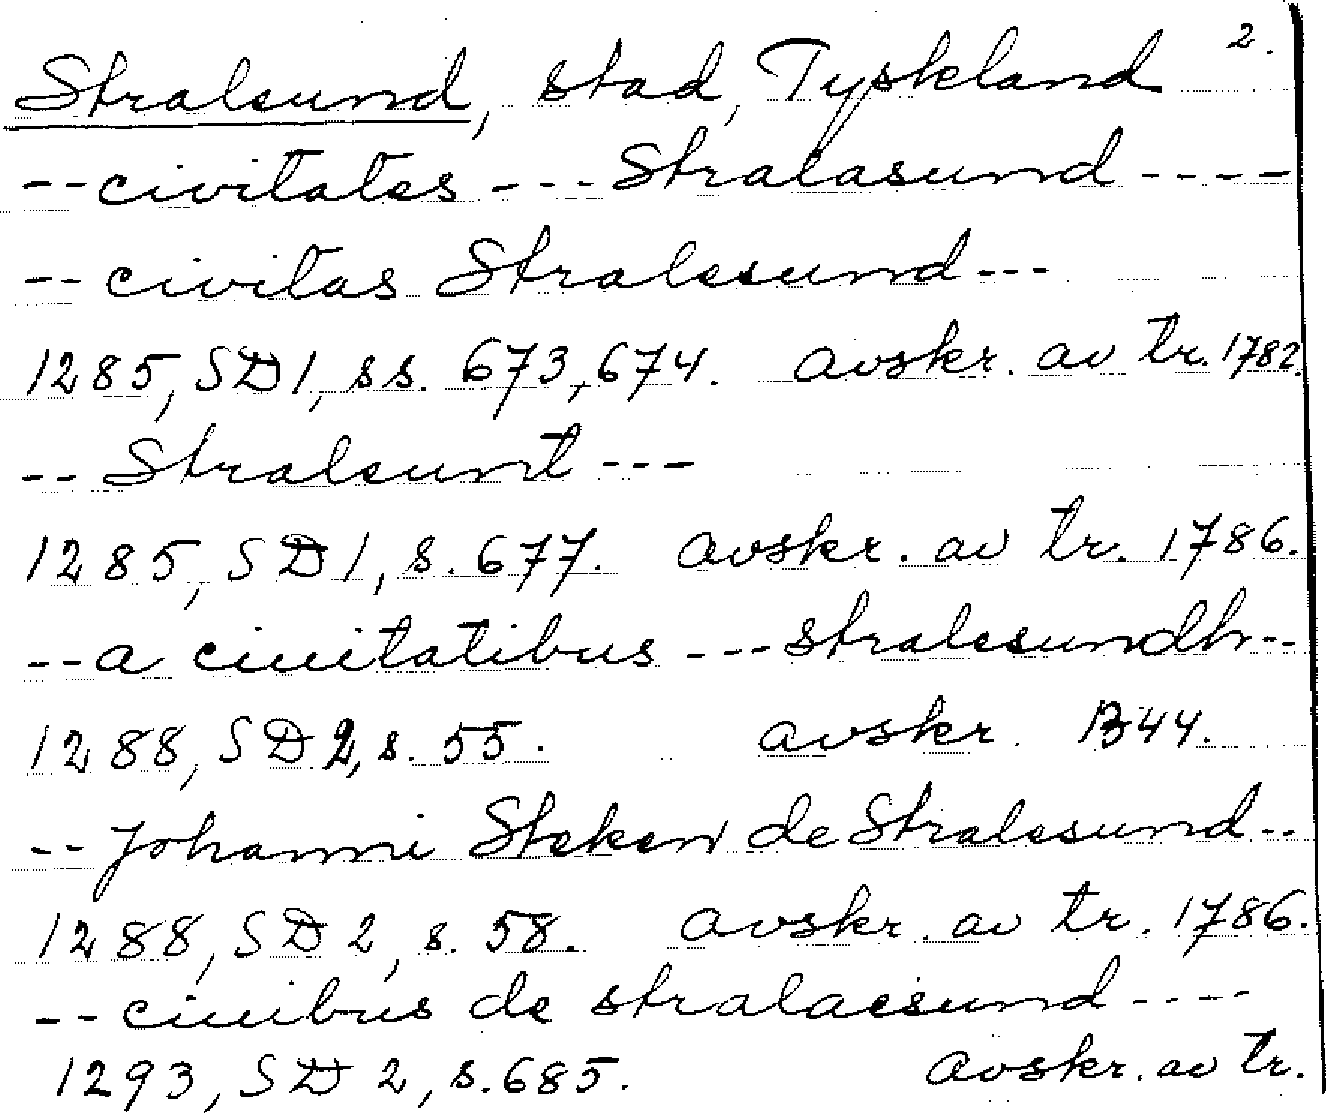 2.
Stralsund, stad, Tyskland
--civitates ---Stralasund----
--civitas Stralesund---
1285, SD1, ss. 673, 674. avskr. av tr. 1782.
--Stralsunt---
1285, SD1, s. 677. avskr. av tr. 1786.
--a ciuitatibus ---stralesundh--
1288, SD2, s. 55. avskr. B44.
--Johanni Steken de Stralesund--
1288, SD2, s. 58. avskr. av tr. 1786.
--ciuibus de stralaesund----
1293, SD2, s. 685. avskr. av tr.